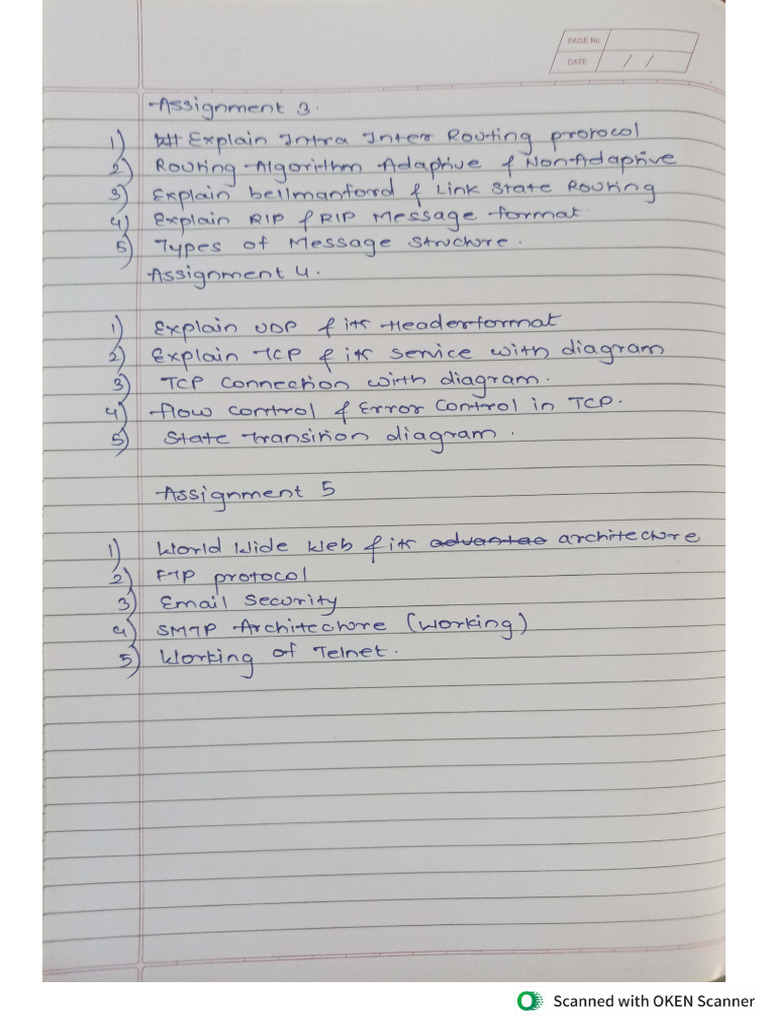 PAGE No.
DATE / /
Assignment 3.
1) Explain Intra Inter Routing protocol
2) Routing Algorithm Adaptive & Non-Adaptive
3) Explain bellmanford & Link State Routing
4) Explain RIP & RIP Message format
5) Types of Message Structure.
Assignment 4.
1) Explain UDP & its Headerformat
2) Explain TCP & its service with diagram
3) TCP Connection with diagram.
4) flow control & Error Control in TCP.
5) State transition diagram.
Assignment 5
1) World Wide Web & its advantae architecture
2) FTP protocol
3) Email Security
4) SMTP Architecture (working)
5) Working of Telnet.
Scanned with OKEN Scanner